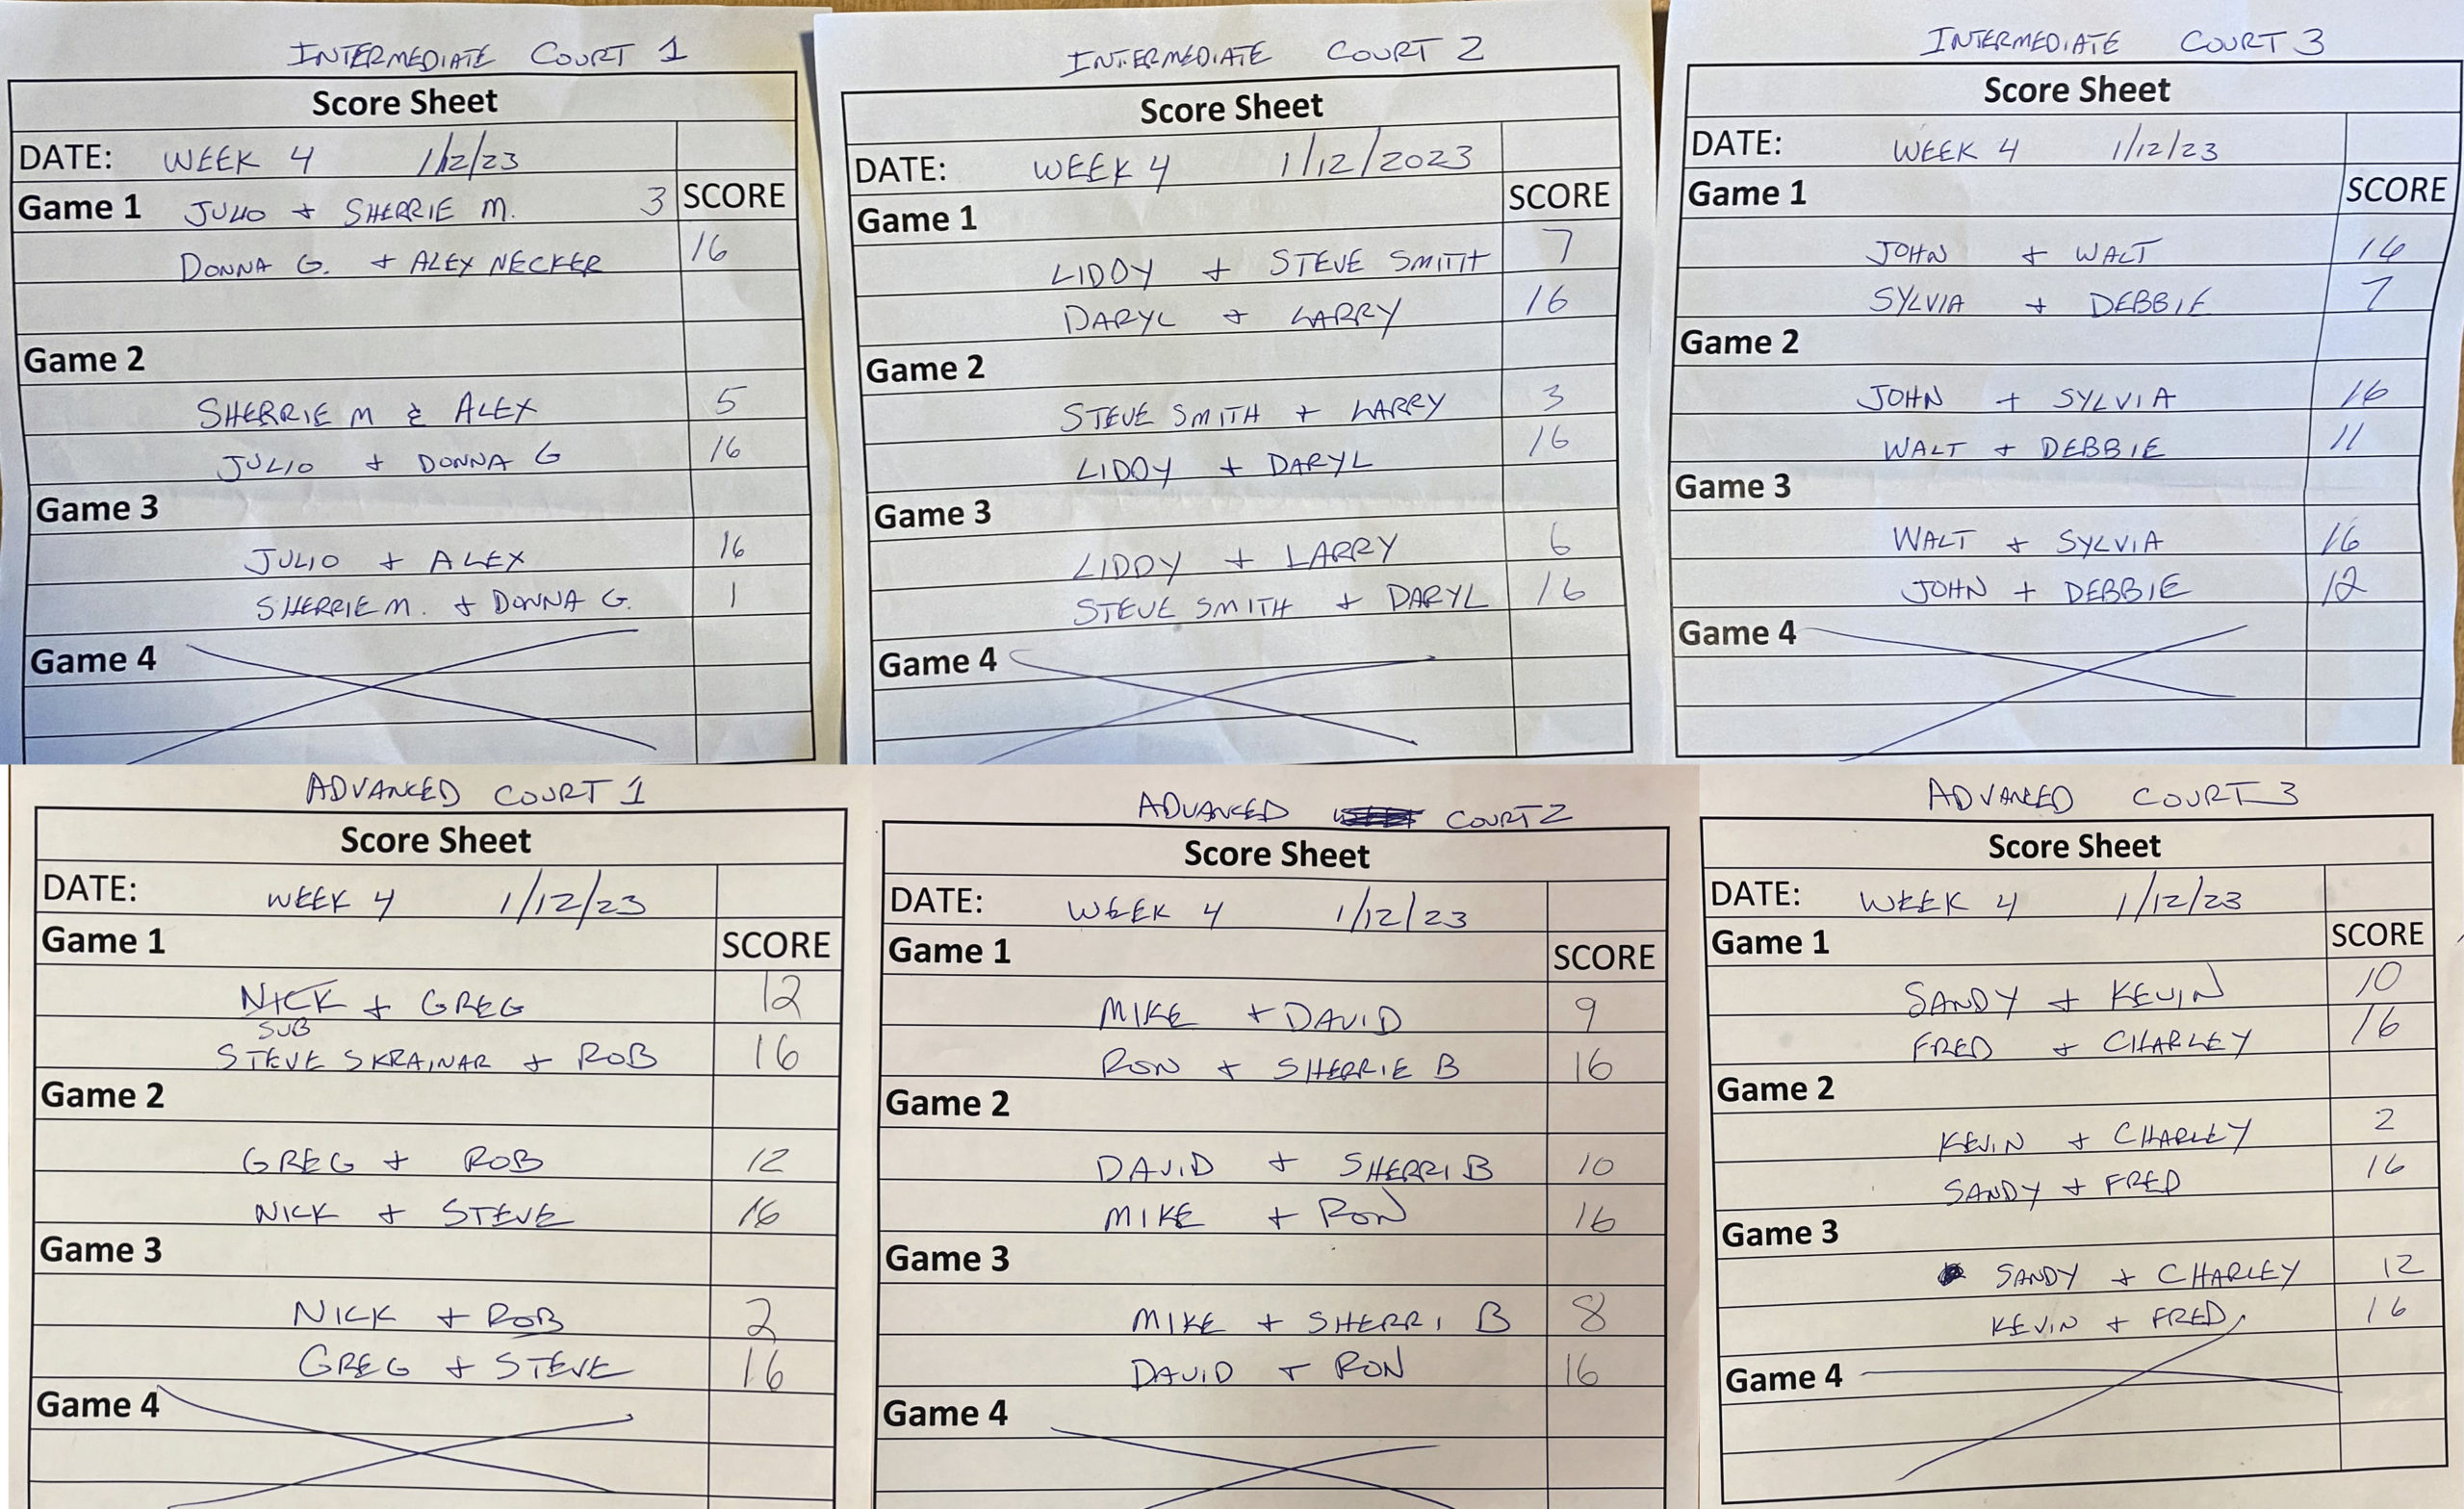 INTERMEDIATE COURT 1
Score Sheet
DATE: WEEK 4 1/12/23
Game 1 JULIO + SHERRIE M. 3 SCORE
DONNA G. + ALEX NECKER 16
Game 2
SHERRIE M & ALEX 5
JULIO + DONNA G 16
Game 3
JULIO + ALEX 16
SHERRIE M. + DONNA G. 1
Game 4
INTERMEDIATE COURT 2
Score Sheet
DATE: WEEK 4 1/12/2023
Game 1 SCORE
LIDDY + STEVE SMITH 7
DARYL + LARRY 16
Game 2
STEVE SMITH + LARRY 3
LIDDY + DARYL 16
Game 3
LIDDY + LARRY 6
STEVE SMITH + DARYL 16
Game 4
INTERMEDIATE COURT 3
Score Sheet
DATE: WEEK 4 1/12/23
Game 1 SCORE
JOHN + WALT 16
SYLVIA + DEBBIE 7
Game 2
JOHN + SYLVIA 16
WALT + DEBBIE 11
Game 3
WALT + SYLVIA 16
JOHN + DEBBIE 12
Game 4
ADVANCED COURT 1
Score Sheet
DATE: WEEK 4 1/12/23
Game 1 SCORE
NICK + GREG 12
SUB
STEVE SKRAINAR + ROB 16
Game 2
GREG + ROB 12
NICK + STEVE 16
Game 3
NICK + ROB 2
GREG + STEVE 16
Game 4
ADVANCED COURT 2
Score Sheet
DATE: WEEK 4 1/12/23
Game 1 SCORE
MIKE + DAVID 9
RON + SHERRIE B 16
Game 2
DAVID + SHERRI B 10
MIKE + RON 16
Game 3
MIKE + SHERRI B 8
DAVID + RON 16
Game 4
ADVANCED COURT 3
Score Sheet
DATE: WEEK 4 1/12/23
Game 1 SCORE
SANDY + KEVIN 10
FRED + CHARLEY 16
Game 2
KEVIN + CHARLEY 2
SANDY + FRED 16
Game 3
SANDY + CHARLEY 12
KEVIN + FRED 16
Game 4